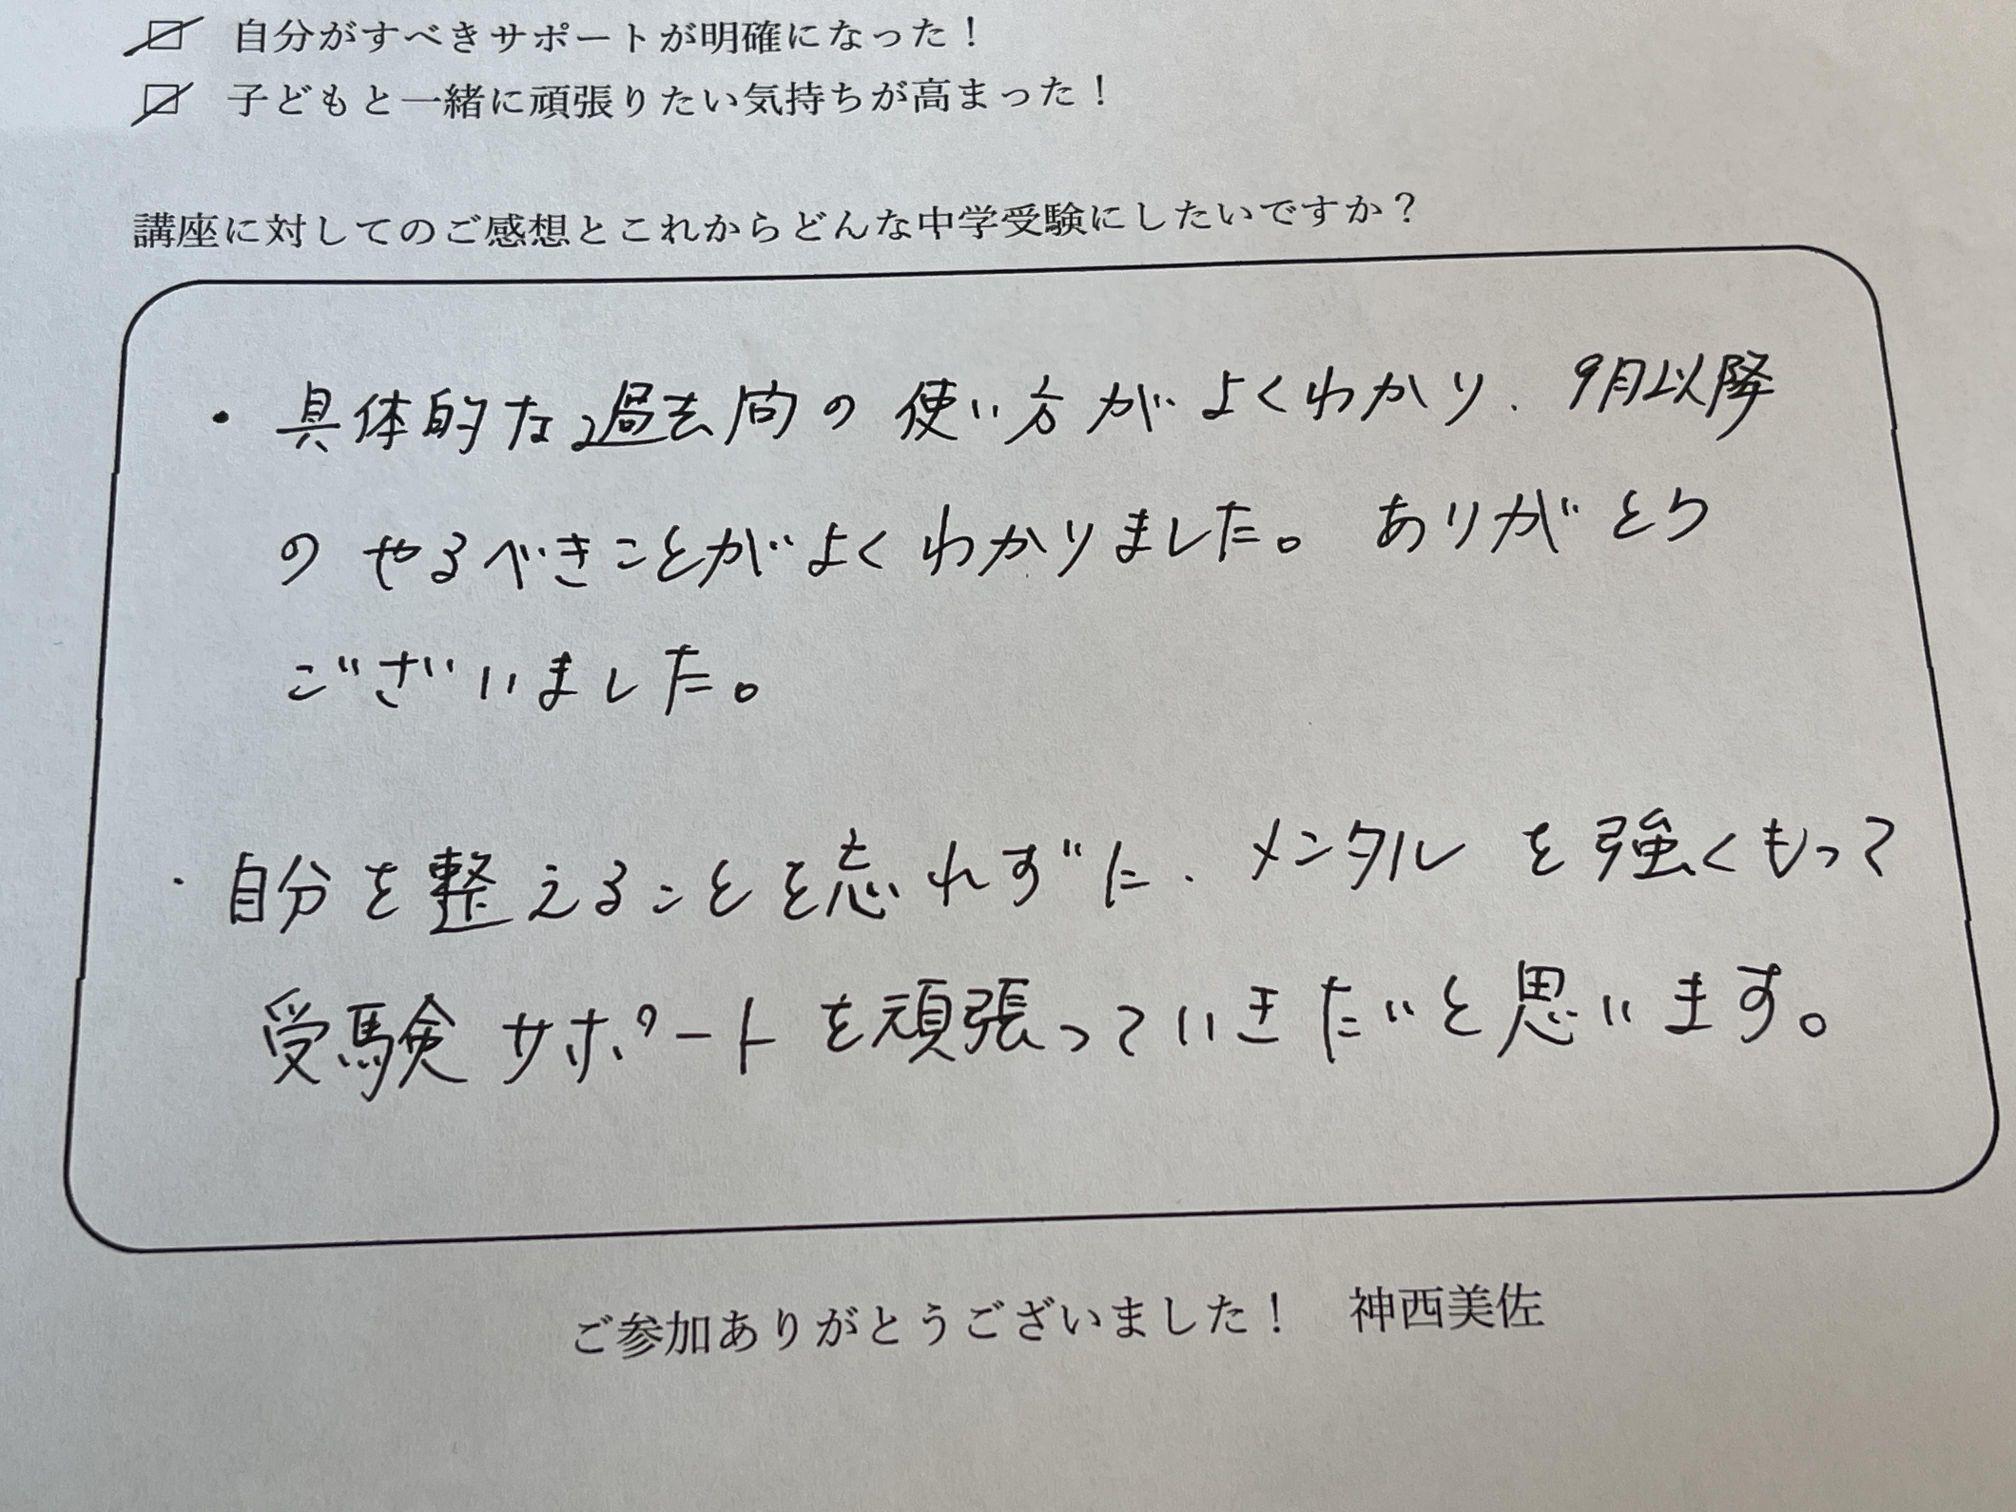 自分がすべきサポートが明確になった！
子どもと一緒に頑張りたい気持ちが高まった！
講座に対してのご感想とこれからどんな中学受験にしたいですか？
・具体的な過去問の使い方がよくわかり、9月以降
のやるべきことがよくわかりました。ありがとう
ございました。
・自分を整えることを忘れずに、メンタルを強くもって
受験サポートを頑張っていきたいと思います。
ご参加ありがとうございました！　神西美佐